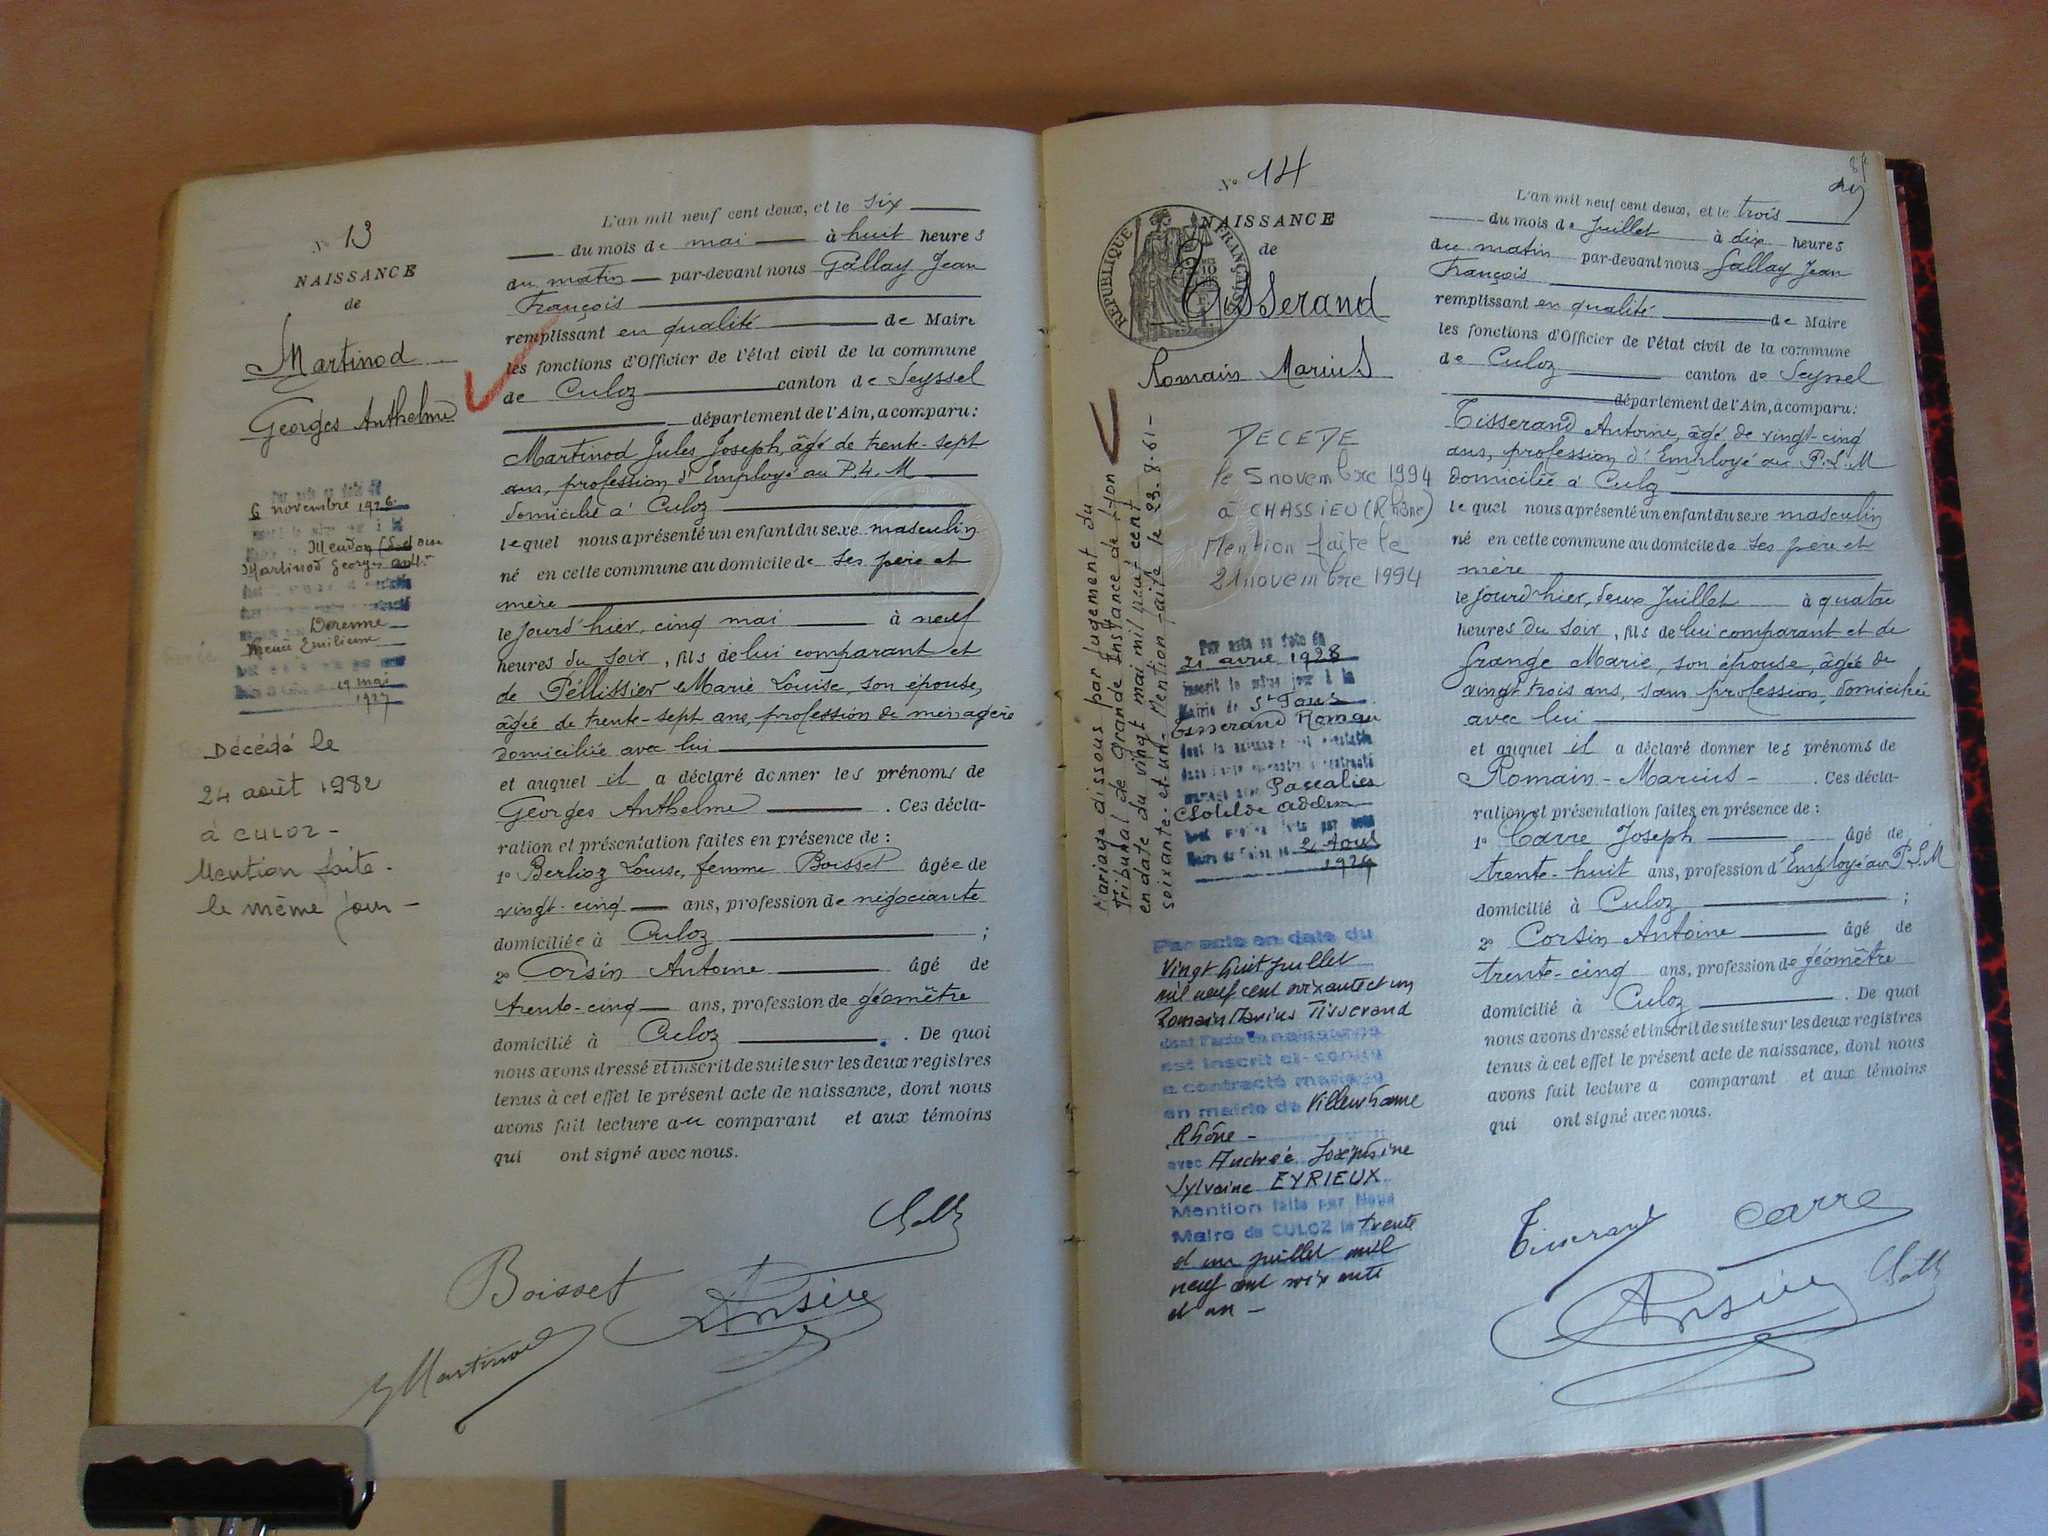 N° 13
NAISSANCE
de
Martinod
Georges Anthelme
6 novembre 1926
Meudon
Martinod Georges anth
Derenne
Emilienne
19 mai
1927
Décédé le
24 août 1982
à CULOZ -
Mention faite -
le même jour -
L'an mil neuf cent deux, et le six
du mois de mai à huit heures
du matin par-devant nous Gallay Jean
François
remplissant en qualité de Maire
les fonctions d'Officier de l'état civil de la commune
de Culoz canton de Seyssel
département de l'Ain, a comparu :
Martinod Jules Joseph, âgé de trente-sept
ans, profession d'Employé au P. L. M
domicilié à Culoz
lequel nous a présenté un enfant du sexe masculin
né en cette commune au domicile de ses père et
mère
le jourd'hier, cinq mai à neuf
heures du soir, fils de lui comparant et
de Péllissier Marie Louise, son épouse,
âgée de trente-sept ans, profession de ménagère
domiciliée avec lui
et auquel il a déclaré donner les prénoms de
Georges Anthelme . Ces décla-
ration et présentation faites en présence de :
1° Berlioz Louise, femme Boisset âgée de
vingt-cinq ans, profession de négociante
domiciliée à Culoz ;
2° Corsin Antoine âgé de
trente-cinq ans, profession de géomètre
domicilié à Culoz . De quoi
nous avons dressé et inscrit de suite sur les deux registres
tenus à cet effet le présent acte de naissance, dont nous
avons fait lecture au comparant et aux témoins
qui ont signé avec nous.
Boisset
Martinod
N° 14
NAISSANCE
de
RÉPUBLIQUE FRANÇAISE
Tisserand
Romain Marius
DECEDE
le 5 novembre 1994
à CHASSIEU (Rhône)
Mention faite le
21 novembre 1994
Mariage dissous par jugement du
Tribunal de Grande Instance de Lyon
en date du vingt mai mil neuf cent
soixante-et-un- Mention faite le 23.8.61-
Par acte en date du
21 avril 1928
inscrit le même jour à la
Mairie de St
Tisserand Romain
Pascalier
Clotilde
1929
Par acte en date du
Vingt huit juillet
mil neuf cent soixante et un
Romain Marius Tisserand
dont l'acte de naissance
est inscrit ci-contre
a contracté mariage
en mairie de Villeurbanne
Rhône -
avec Andrée Joséphine
Sylvaine EYRIEUX
Mention faite par Nous
Maire de CULOZ le trente
et un juillet mil
neuf cent soixante
et un -
L'an mil neuf cent deux, et le trois
du mois de Juillet à dix heures
du matin par-devant nous Gallay Jean
François
remplissant en qualité de Maire
les fonctions d'Officier de l'état civil de la commune
de Culoz canton de Seyssel
département de l'Ain, a comparu :
Tisserand Antoine, âgé de vingt-cinq
ans, profession d'Employé au P. L. M
domicilié à Culoz
lequel nous a présenté un enfant du sexe masculin
né en cette commune au domicile de ses père et
mère
le jourd'hier, deux Juillet à quatre
heures du soir, fils de lui comparant et de
Grange Marie, son épouse, âgée de
vingt trois ans, sans profession, domiciliée
avec lui
et auquel il a déclaré donner les prénoms de
Romain-Marius- . Ces décla-
ration et présentation faites en présence de :
1° Carre Joseph âgé de
trente-huit ans, profession d'Employé au P. L. M
domicilié à Culoz ;
2° Corsin Antoine âgé de
trente-cinq ans, profession de géomètre
domicilié à Culoz . De quoi
nous avons dressé et inscrit de suite sur les deux registres
tenus à cet effet le présent acte de naissance, dont nous
avons fait lecture a comparant et aux témoins
qui ont signé avec nous.
Tisserand Carre